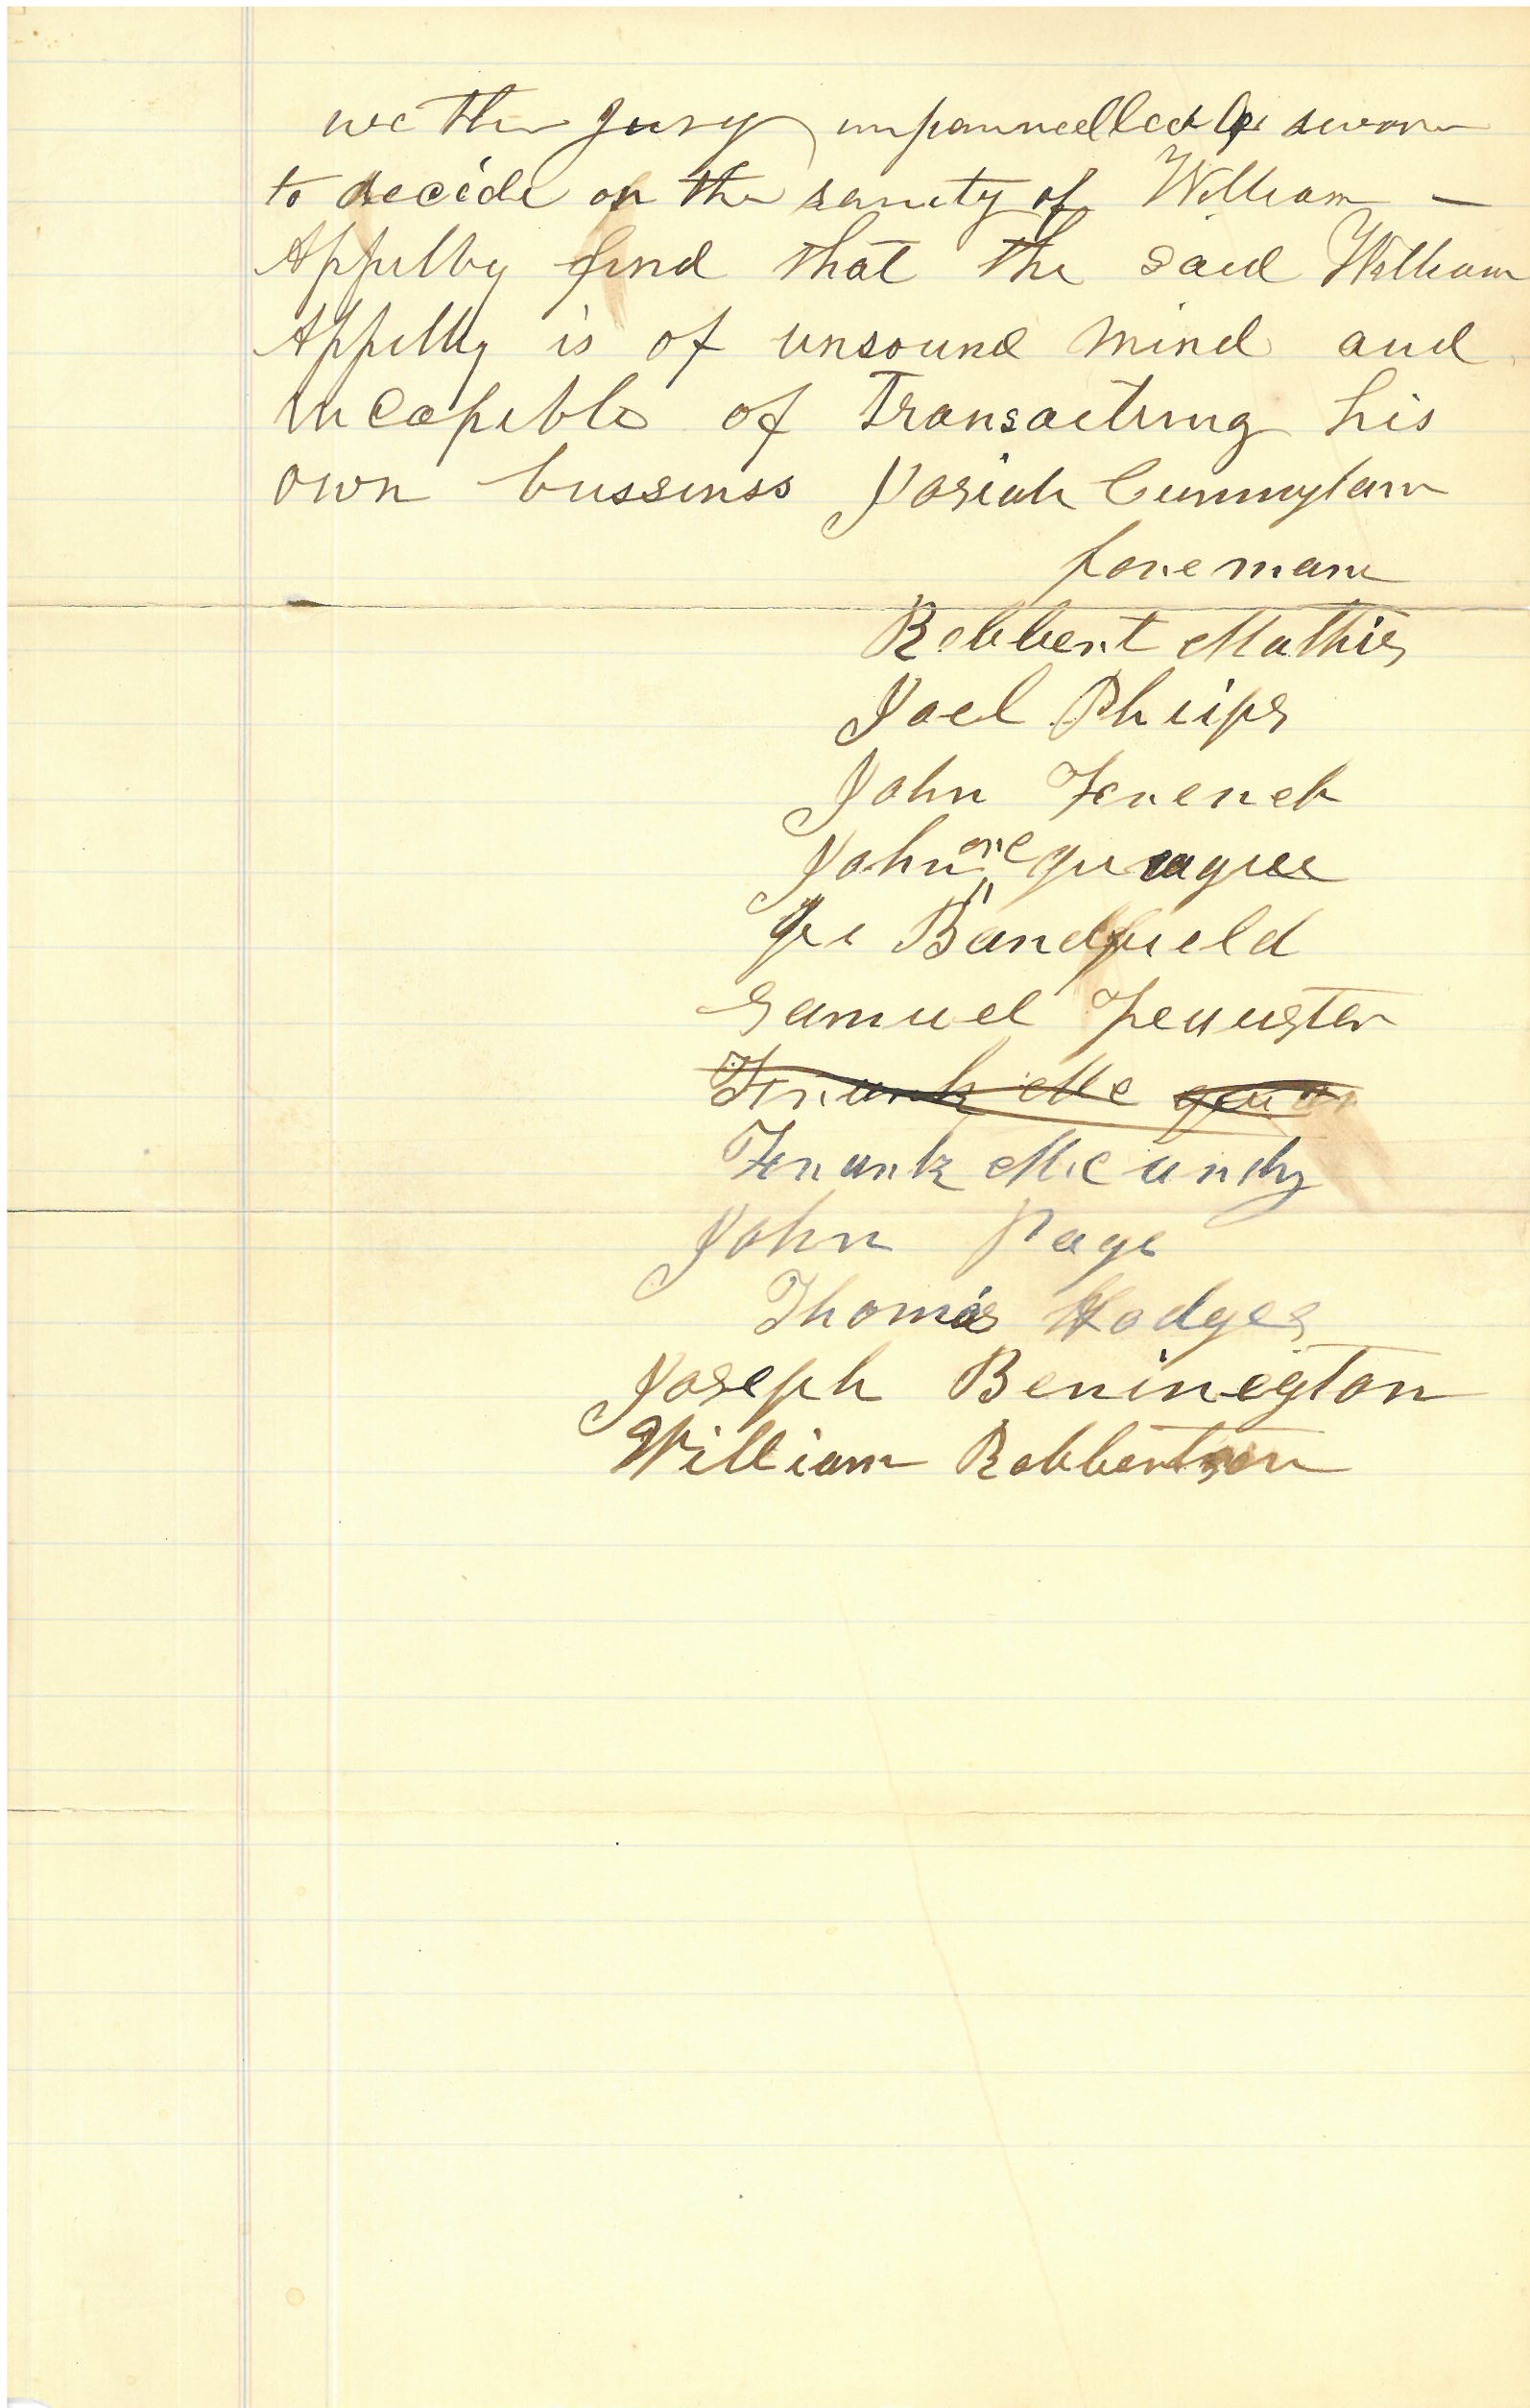 we the Jury impannelled & sworn
to decide on the sanity of William —
Appelby find that the said William
Appelby is of unsound mind and
in Capible of Transacting his
own bussinss Josiah Cunnyham
foreman
Robbert Mathis
Joel Phips
John French
John Mc
Bandfield
Samuel
Frank Mc
Frank Mc
John Page
Thomas Hodges
Joseph Beninegton
William Robbertson